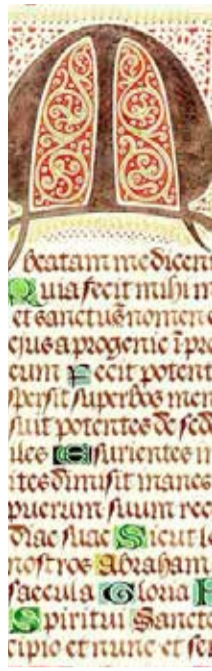 M
beatam me dicen
Quia fecit mihi m
et sanctuʒ nomen e
ejus a progenie ī pro
eum Fecit potent
spersit superbos men
suit potentes de sed
iles Esurientes m
ites dimisit inanes
puerum suum rec
diae suae Sicut lo
nostros Abraham
saecula Gloria P
Spiritui Sancto
cipio et nunc et sem